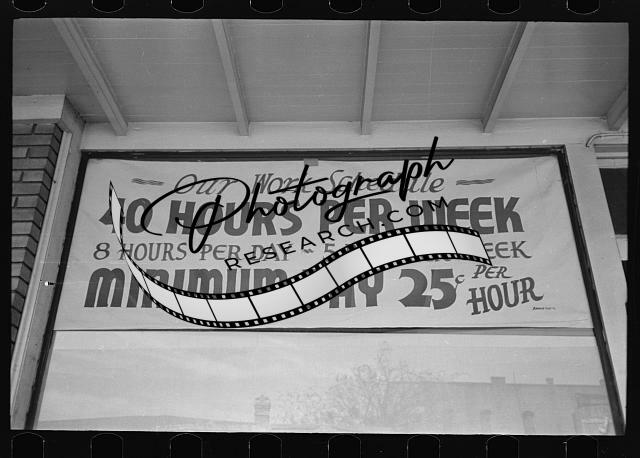 Our Work Schedule
40 HOURS PER WEEK
8 HOURS PER DAY - 5 WEEK
MINIMUM PAY 25¢ PER HOUR
Photograph
RESEARCH.COM